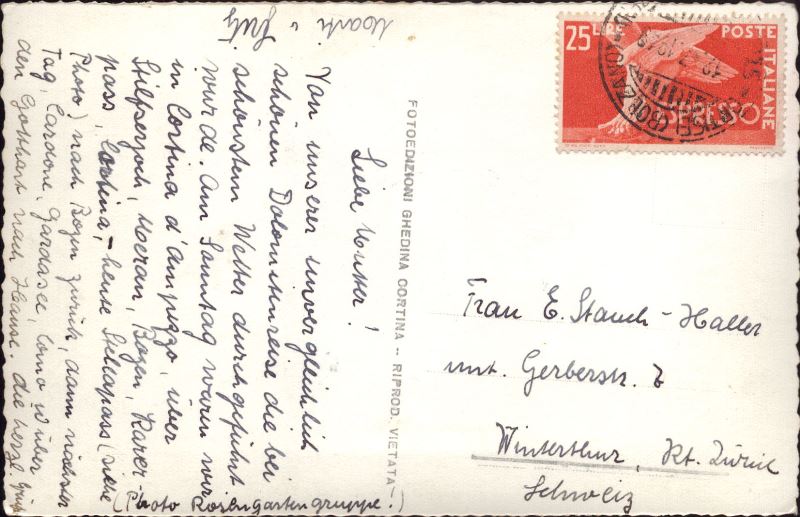 Liebe Mutter!
Von unserer unvergleichlich
schönen Dolomitenreise die bei
schönstem Wetter durchgeführt
wurde. Am Sonntag waren wir
in Cortina d'Ampezzo, über
Stilfserjoch, Meran, Bozen, Karer-
pass, Cortina,- heute Stellapass (siehe
Photo) nach Bozen zurück, dann nächster
Tag, Cardone, Gardasee, Como u über
den Gotthart nach Hause. die herzl Grüße
Marti u Fritz
(Photo Rosengartengruppe.)
FOTOEDIZIONI GHEDINA CORTINA -- RIPROD. VIETATA
25 LIRE POSTE ITALIANE
ESPRESSO
Frau E. Stauch-Haller
unt. Gerberstr. 7
Winterthur, Kt. Zürich
Schweiz